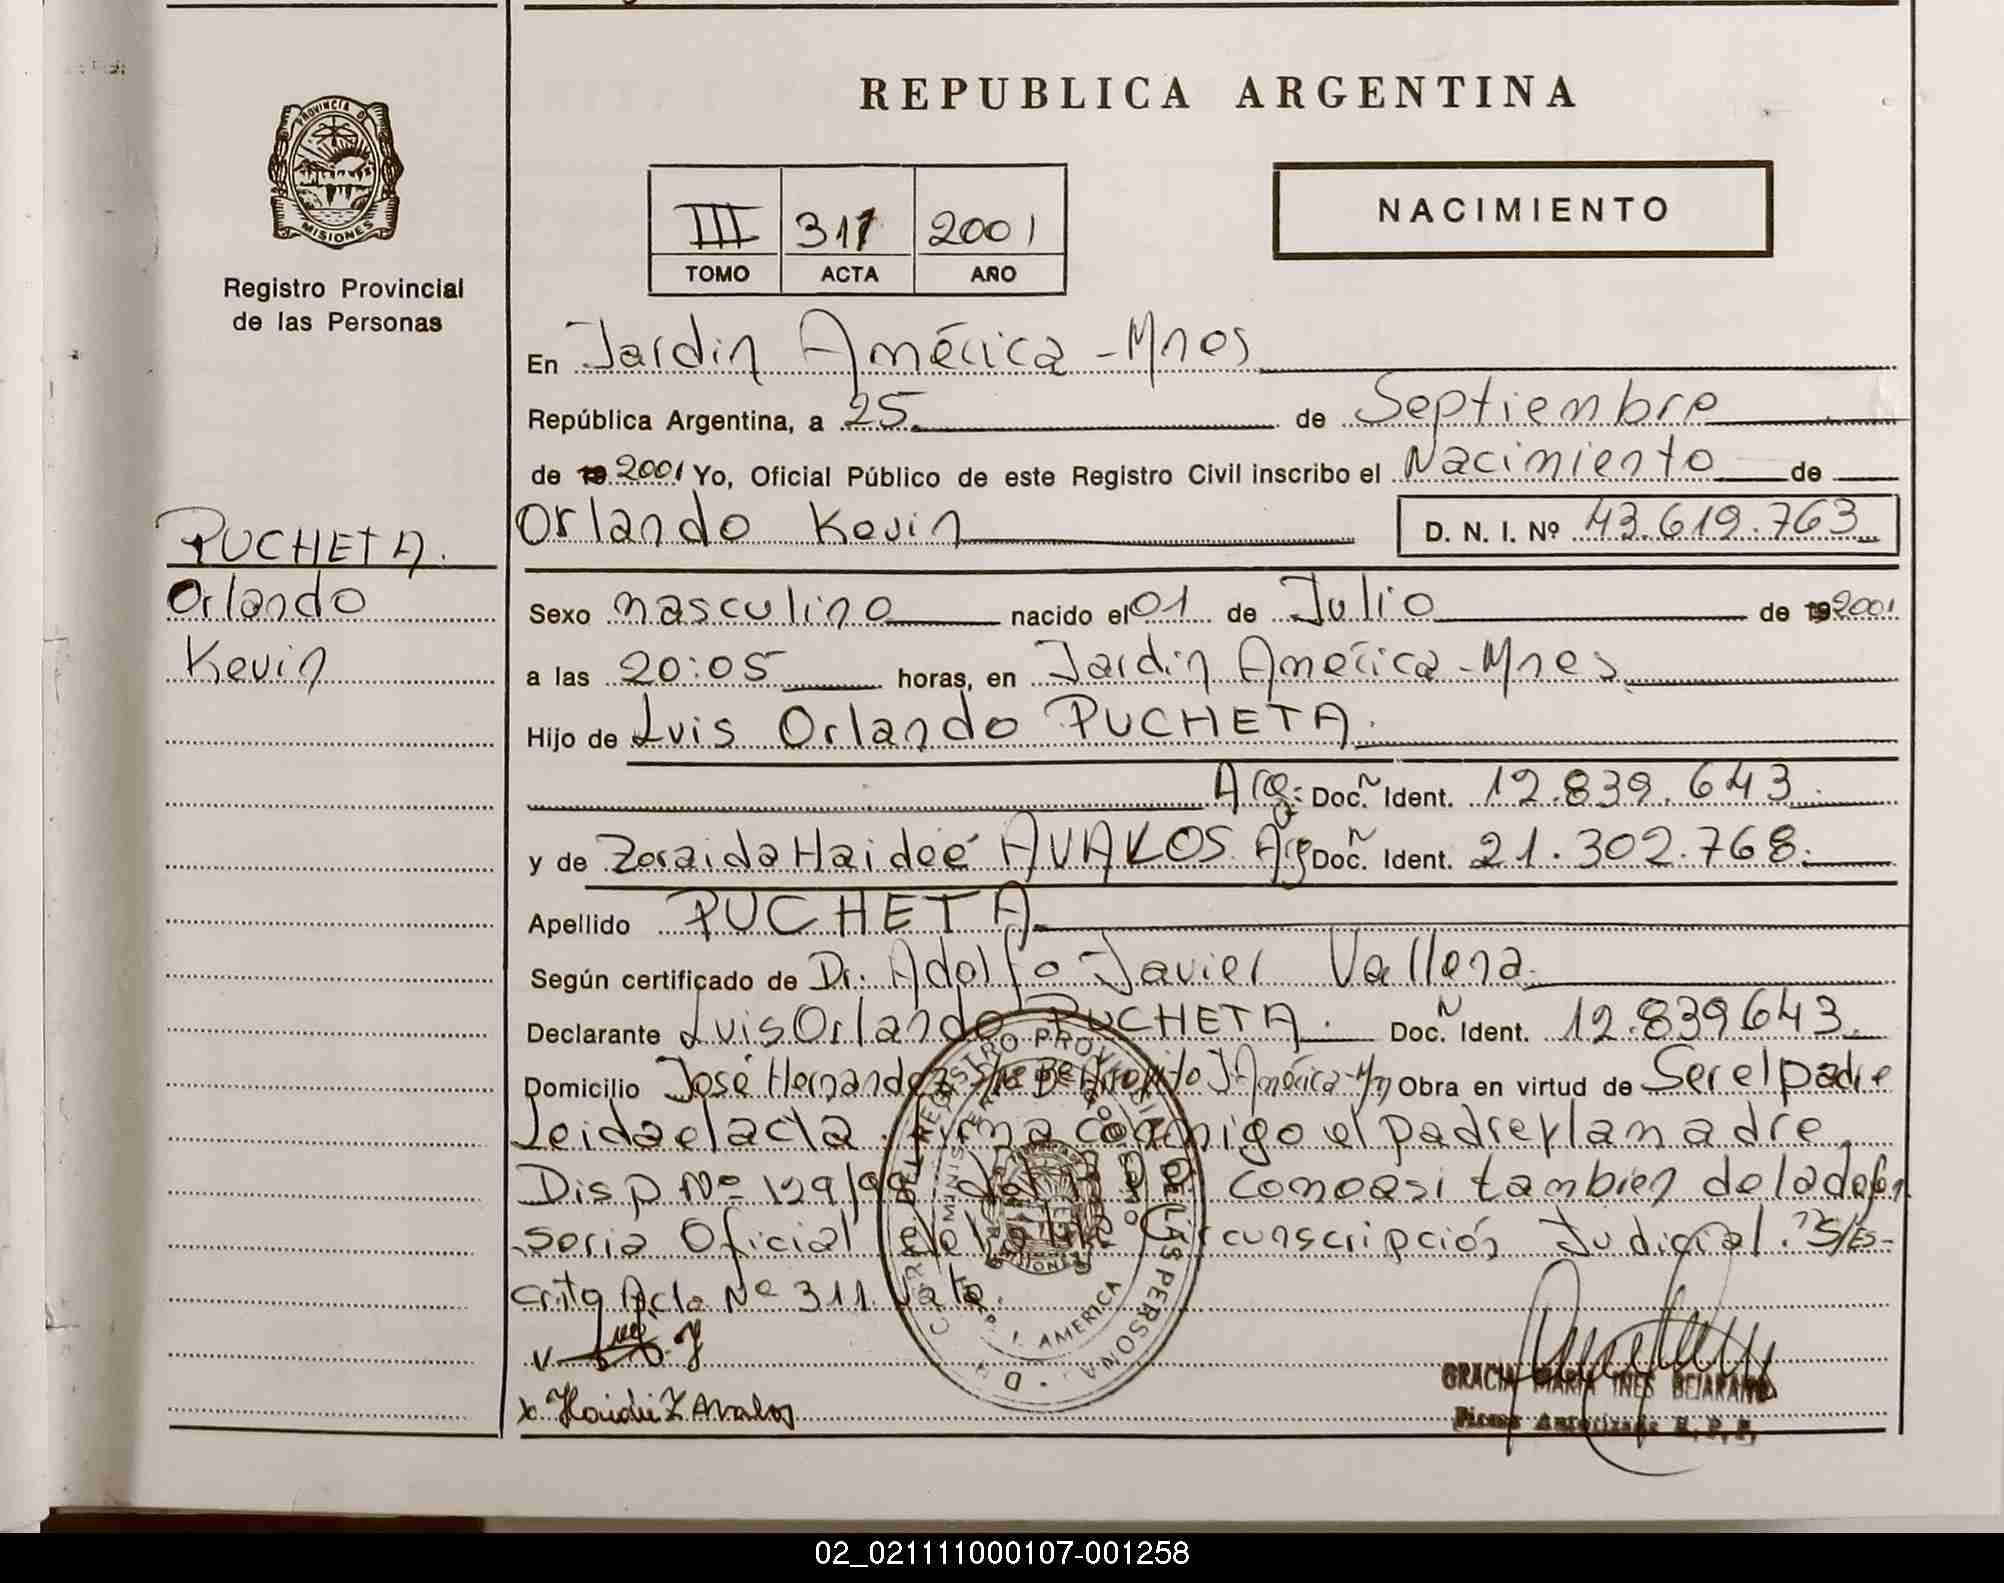 REPUBLICA ARGENTINA
PROVINCIA D
MISIONES
Registro Provincial
de las Personas
III 311 2001
TOMO ACTA AÑO
NACIMIENTO
En Jardin América - Mnes
República Argentina, a 25 de Septiembre
de 19 2001 Yo, Oficial Público de este Registro Civil inscribo el Nacimiento de
Orlando Kevin D. N. I. Nº 43.619.763
PUCHETA.
Orlando
Kevin
Sexo masculino nacido el 01 de Julio de 19 2001
a las 20:05 horas, en Jardin América - Mnes
Hijo de Luis Orlando PUCHETA.
Arg: Doc. N Ident. 12.839.643.
y de Zoraida Haideé AVALOS Arg Doc. N Ident. 21.302.768.
Apellido PUCHETA
Según certificado de Dr. Adolfo Javier
Declarante Luis Orlando PUCHETA. Doc. N Ident. 12.839643.
Domicilio José Hernandez J. América - Mn Obra en virtud de Ser el padre
Leida el acta, firma conmigo el padre y la madre,
Disp Nº 129/99 como asi tambien de la defen
soria Oficial de Circunscripción Judicial. "S/Es-
crito Acta Nº 311 Vale.
Haidé Z Avalos
REGISTRO PROVINCIAL DE LAS PERSONAS
AMERICA
MISIONES
GRACIA MARIA INES BEJARANO
Firma Autorizada R. P. P.
02_021111000107-001258